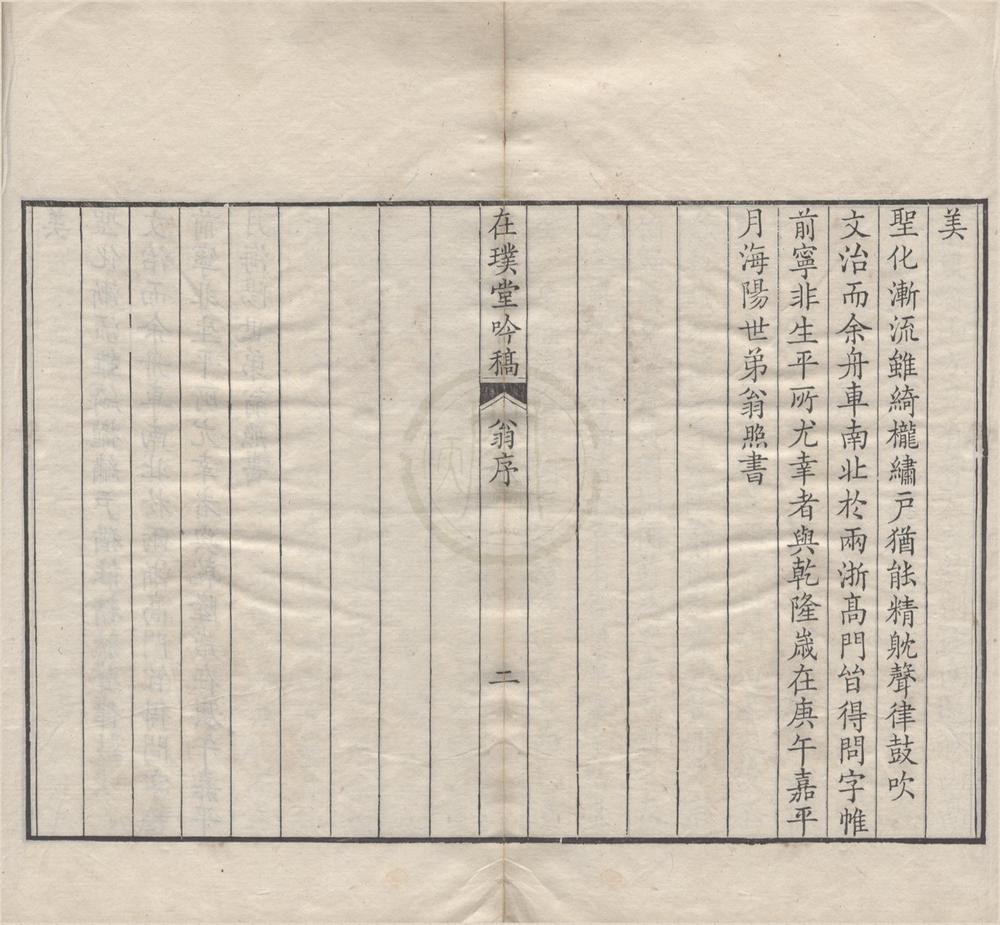 美
聖化漸流雖綺櫳繡戸猶能精躭聲律鼓吹
文治而余舟車南北於兩浙髙門皆得問字帷
前寧非生平所尤幸者與乾隆歳在庚午嘉平
月海陽世弟翁照書
在璞堂吟稿 翁序 二